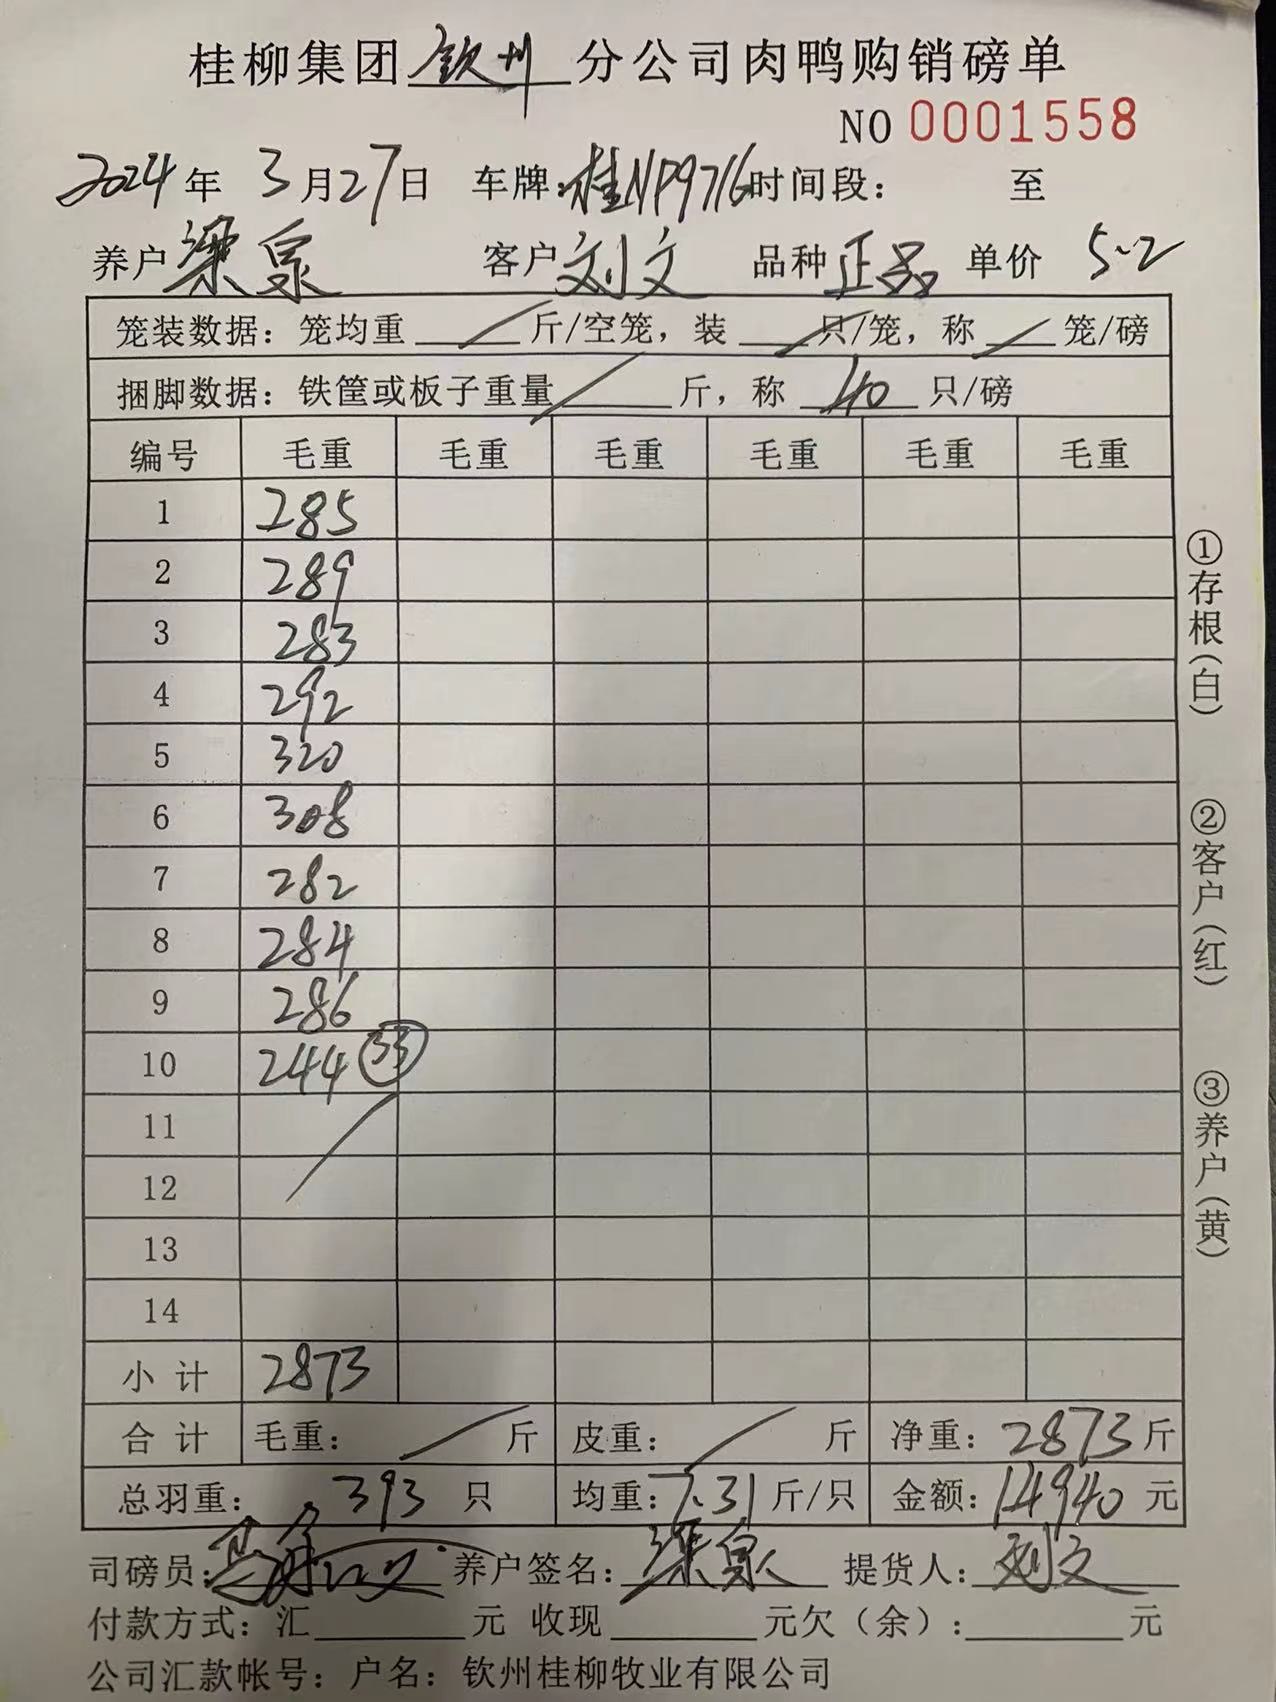 桂柳集团 钦州 分公司肉鸭购销磅单
NO 0001558
2024年 3月27日 车牌:桂NP9716 时间段: 至
养户 梁泉 客户 刘文 品种 正品 单价 5.2
笼装数据:笼均重 / 斤/空笼,装 / 只/笼,称 / 笼/磅
捆脚数据:铁筐或板子重量 / 斤,称 40 只/磅
编号 毛重 毛重 毛重 毛重 毛重 毛重
1 285
2 289
3 283
4 292
5 320
6 308
7 282
8 284
9 286
10 244 33
11
12
13
14
小计 2873
合计 毛重: / 斤 皮重: / 斤 净重:2873斤
总羽重: 393 只 均重:7.31斤/只 金额:14940元
司磅员: 养户签名:梁泉 提货人:刘文
付款方式:汇______元 收现______元欠(余):______元
公司汇款帐号:户名:钦州桂柳牧业有限公司
①存根(白)
②客户(红)
③养户(黄)